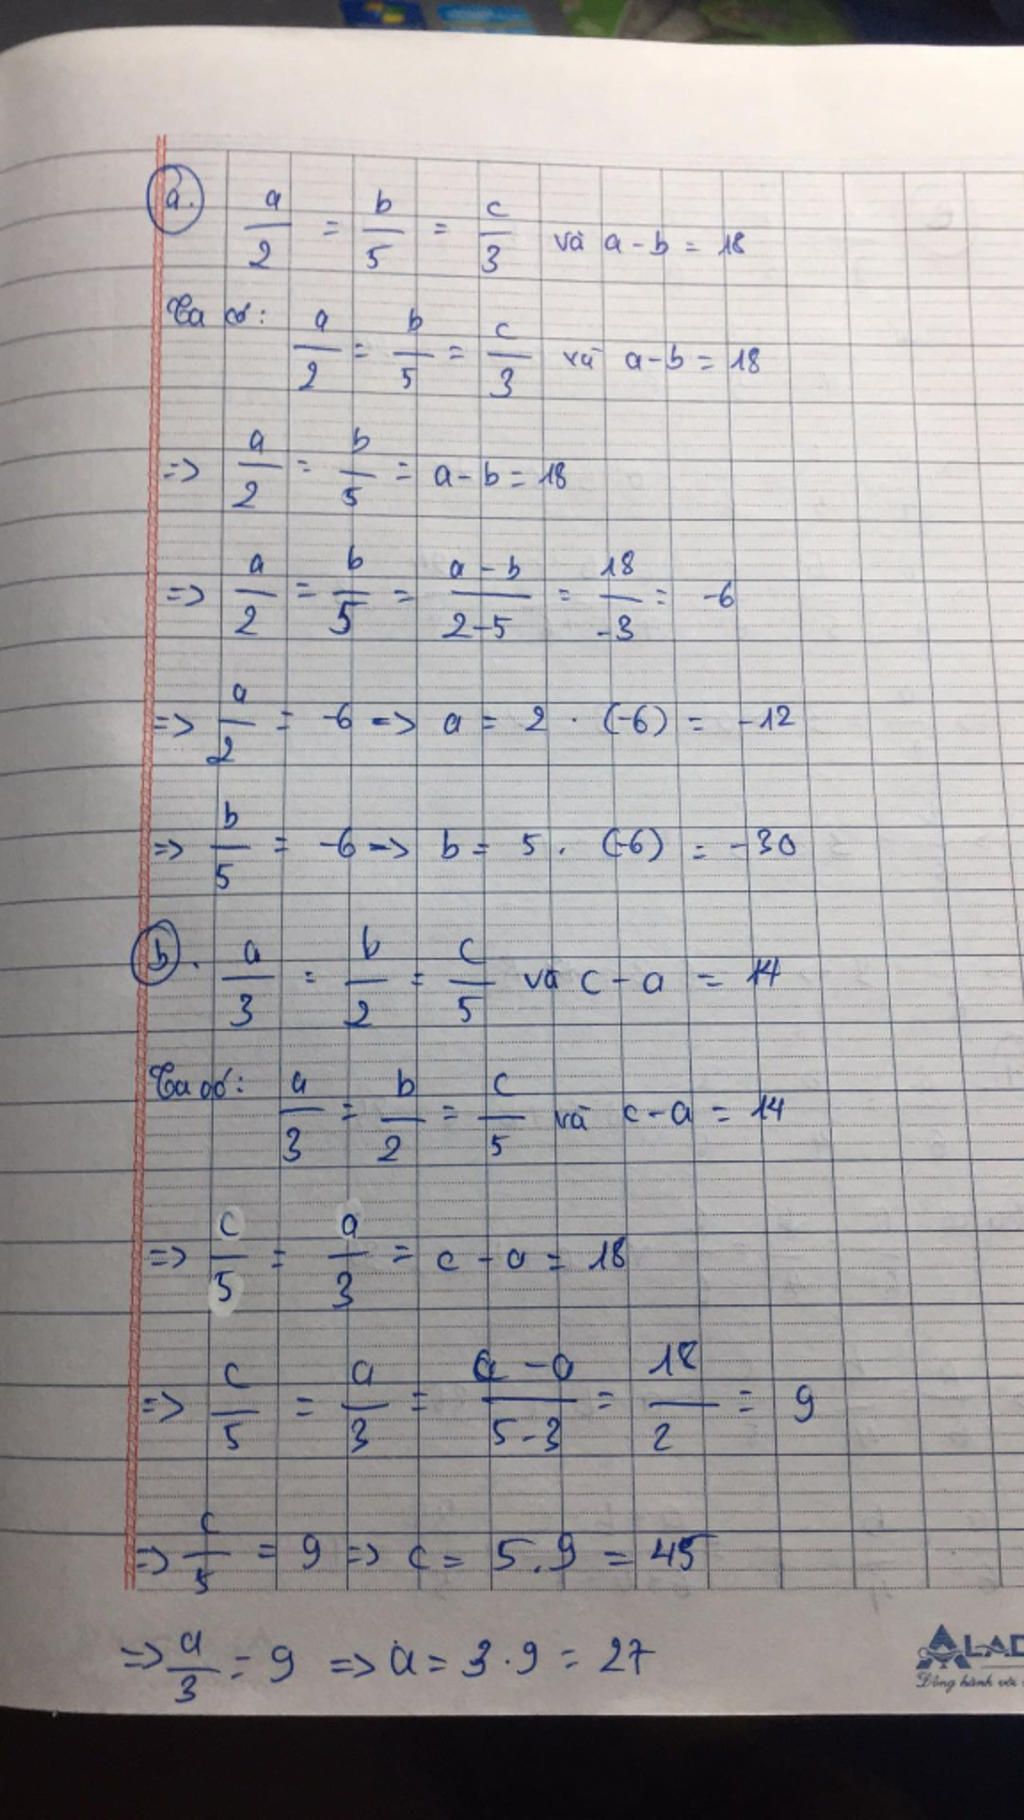 a. a/2 = b/5 = c/3 và a - b = 18
Ta có: a/2 = b/5 = c/3 và a - b = 18
=> a/2 = b/5 = a - b = 18
=> a/2 = b/5 = a - b/2 - 5 = 18/-3 = -6
=> a/2 = -6 => a = 2 . (-6) = -12
=> b/5 = -6 => b = 5 . (-6) = -30
b. a/3 = b/2 = c/5 và c - a = 14
Ta có: a/3 = b/2 = c/5 và c - a = 14
=> c/5 = a/3 = c - a = 18
=> c/5 = a/3 = c - a/5 - 3 = 18/2 = 9
=> c/5 = 9 => c = 5 . 9 = 45
=> a/3 = 9 => a = 3 . 9 = 27
ALAD
Đồng hành với